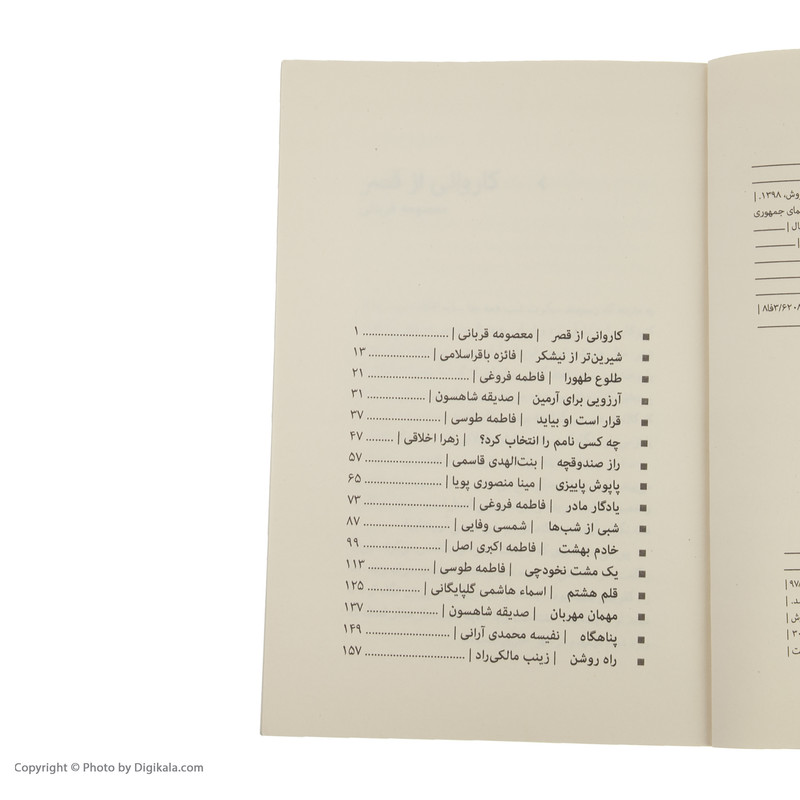 کاروانی از قصر | معصومه قربانی | ............................ ۱
شیرین‌تر از نیشکر | فائزه باقراسلامی | .................... ۱۳
طلوع طهورا | فاطمه فروغی | .................................. ۲۱
آرزویی برای آرمین | صدیقه شاهسون | ................... ۳۱
قرار است او بیاید | فاطمه طوسی | ........................ ۳۷
چه کسی نامم را انتخاب کرد؟ | زهرا اخلاقی | ......... ۴۷
راز صندوقچه | بنت‌الهدی قاسمی | ......................... ۵۷
پاپوش پاییزی | مینا منصوری پویا | ......................... ۶۵
یادگار مادر | فاطمه فروغی | .................................. ۷۳
شبی از شب‌ها | شمسی وفایی | ............................ ۸۷
خادم بهشت | فاطمه اکبری اصل | ......................... ۹۹
یک مشت نخودچی | فاطمه طوسی | .................... ۱۱۳
قلم هشتم | اسماء هاشمی گلپایگانی | ................. ۱۲۵
مهمان مهربان | صدیقه شاهسون | ....................... ۱۳۷
پناهگاه | نفیسه محمدی آرانی | ............................ ۱۴۹
راه روشن | زینب مالکی‌راد | ................................. ۱۵۷
۱۳۹۸. |
جمهوری
Copyright © Photo by Digikala.com